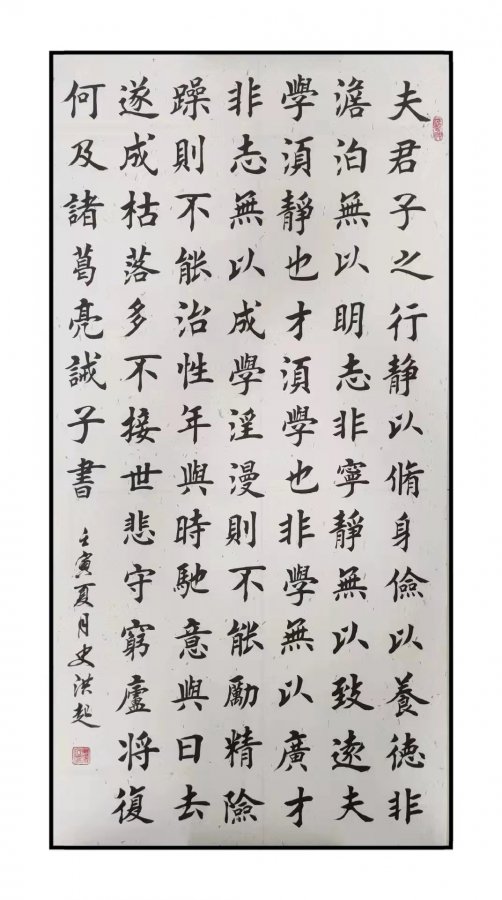 夫君子之行静以脩身儉以養德非
澹泊無以明志非寧靜無以致遠夫
學須靜也才須學也非學無以廣才
非志無以成學淫漫則不能勵精險
躁則不能治性年與時馳意與日去
遂成枯落多不接世悲守窮廬将復
何及諸葛亮誡子書
壬寅夏月史洪起